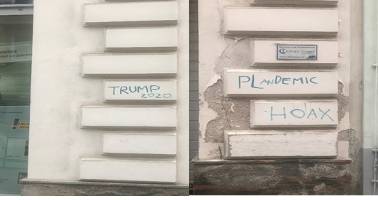 TRUMP
2020
PLANDEMIC
HOAX